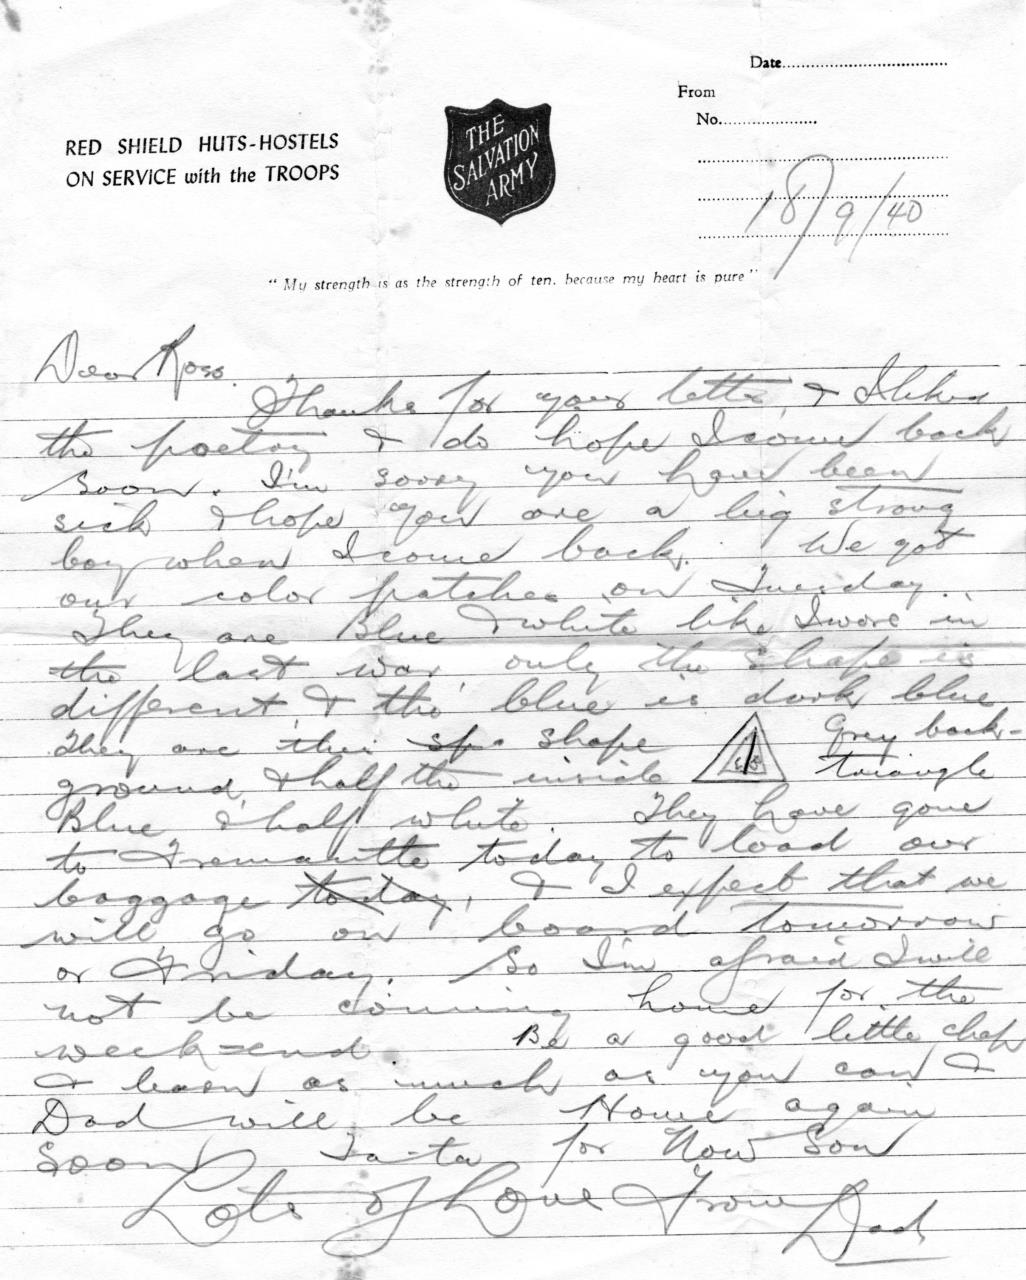 Date..................................
From
No....................
RED SHIELD HUTS-HOSTELS
ON SERVICE with the TROOPS
THE
SALVATION
ARMY
18/9/40
"My strength is as the strength of ten, because my heart is pure"
Dear Ross.
Thanks for your letter, & I liked
the poetry & do hope I come back
soon. I'm sorry you have been
sick & hope you are a big strong
boy when I come back. We got
our color patches on Tuesday.
They are Blue & white like I wore in
the last war, only the shape is
different, & the blue is dark blue
They are this sp shape Grey back-
ground, & half the inside triangle
Blue & half white. They have gone
to Fremantle today to load our
baggage today, & I expect that we
will go on board tomorrow
or Friday. So I'm afraid I will
not be coming home for the
week-end. Be a good little chap
& learn as much as you can &
Dad will be Home again
soon Ta-ta for Now Son
Lots of Love From
Dad